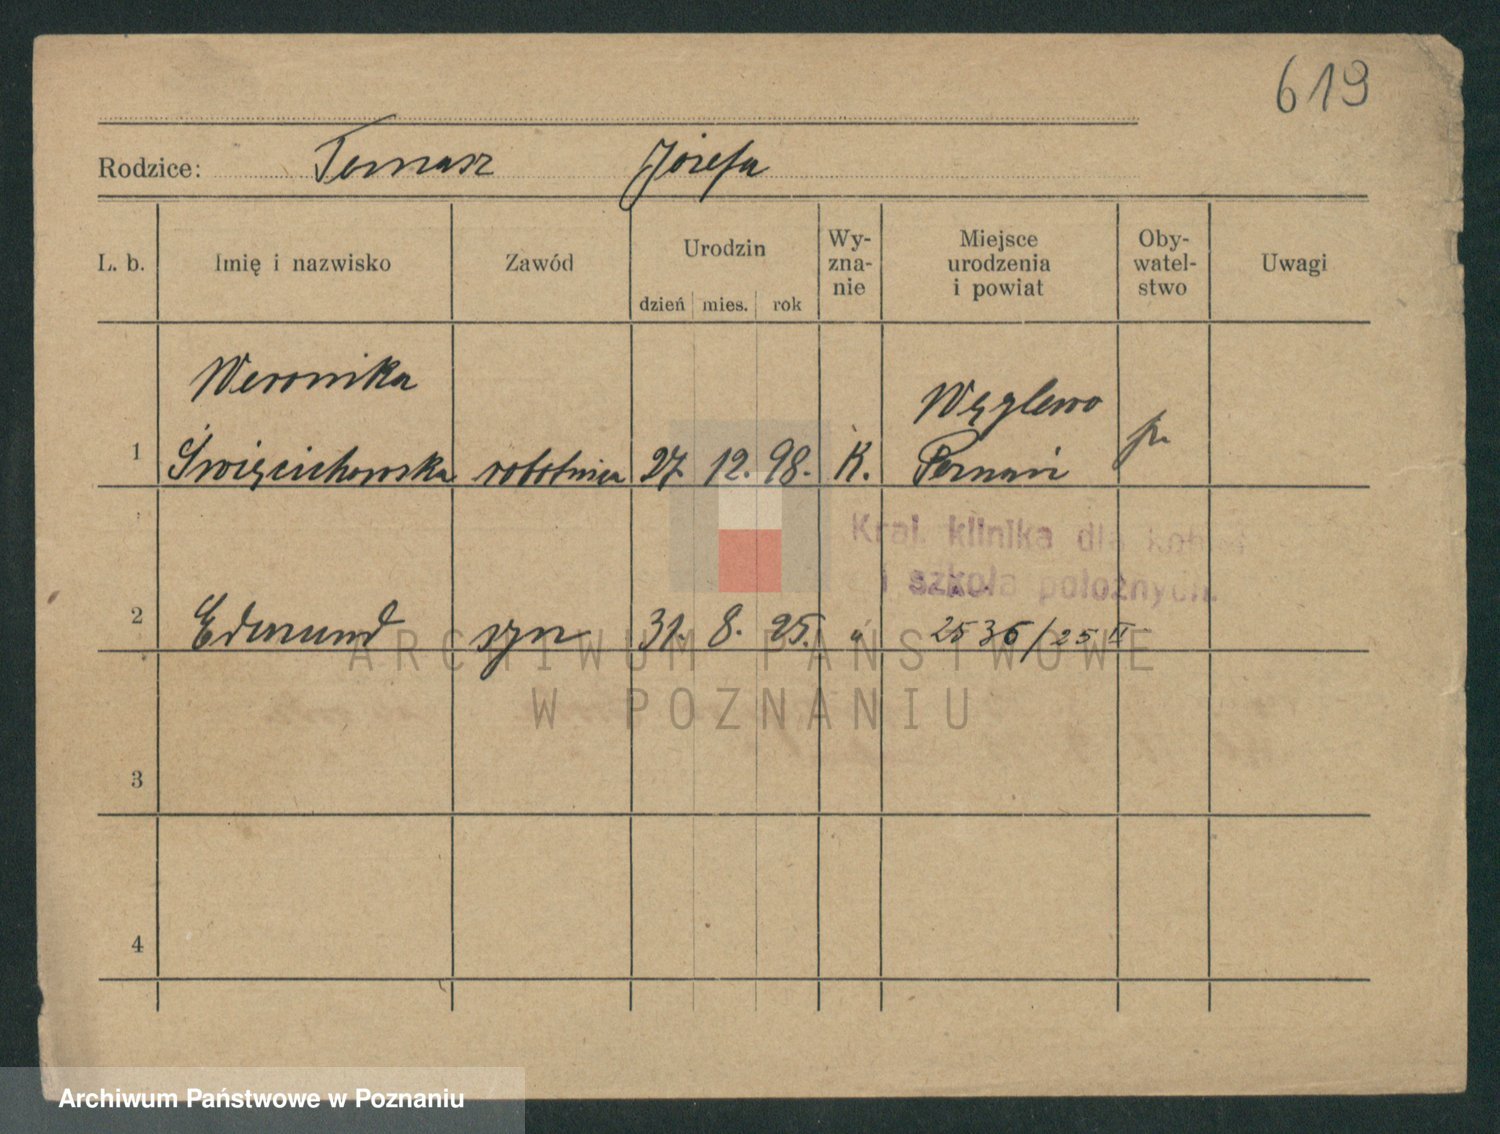 619
Rodzice: Tomasz Józefa
L. b. Imię i nazwisko Zawód Urodzin dzień mies. rok Wy-zna-nie Miejsce urodzenia i powiat Oby-watel-stwo Uwagi
Weronika Węglewo
1 Święcichowska robotnica 27. 12. 98. K. Poznań pr.
Kraj. klinika dla kobiet
i szkoła położnych.
2 Edmund syn 31. 8. 25. " 2536/25 II
ARCHIWUM PAŃSTWOWE
W POZNANIU
3
4
Archiwum Państwowe w Poznaniu